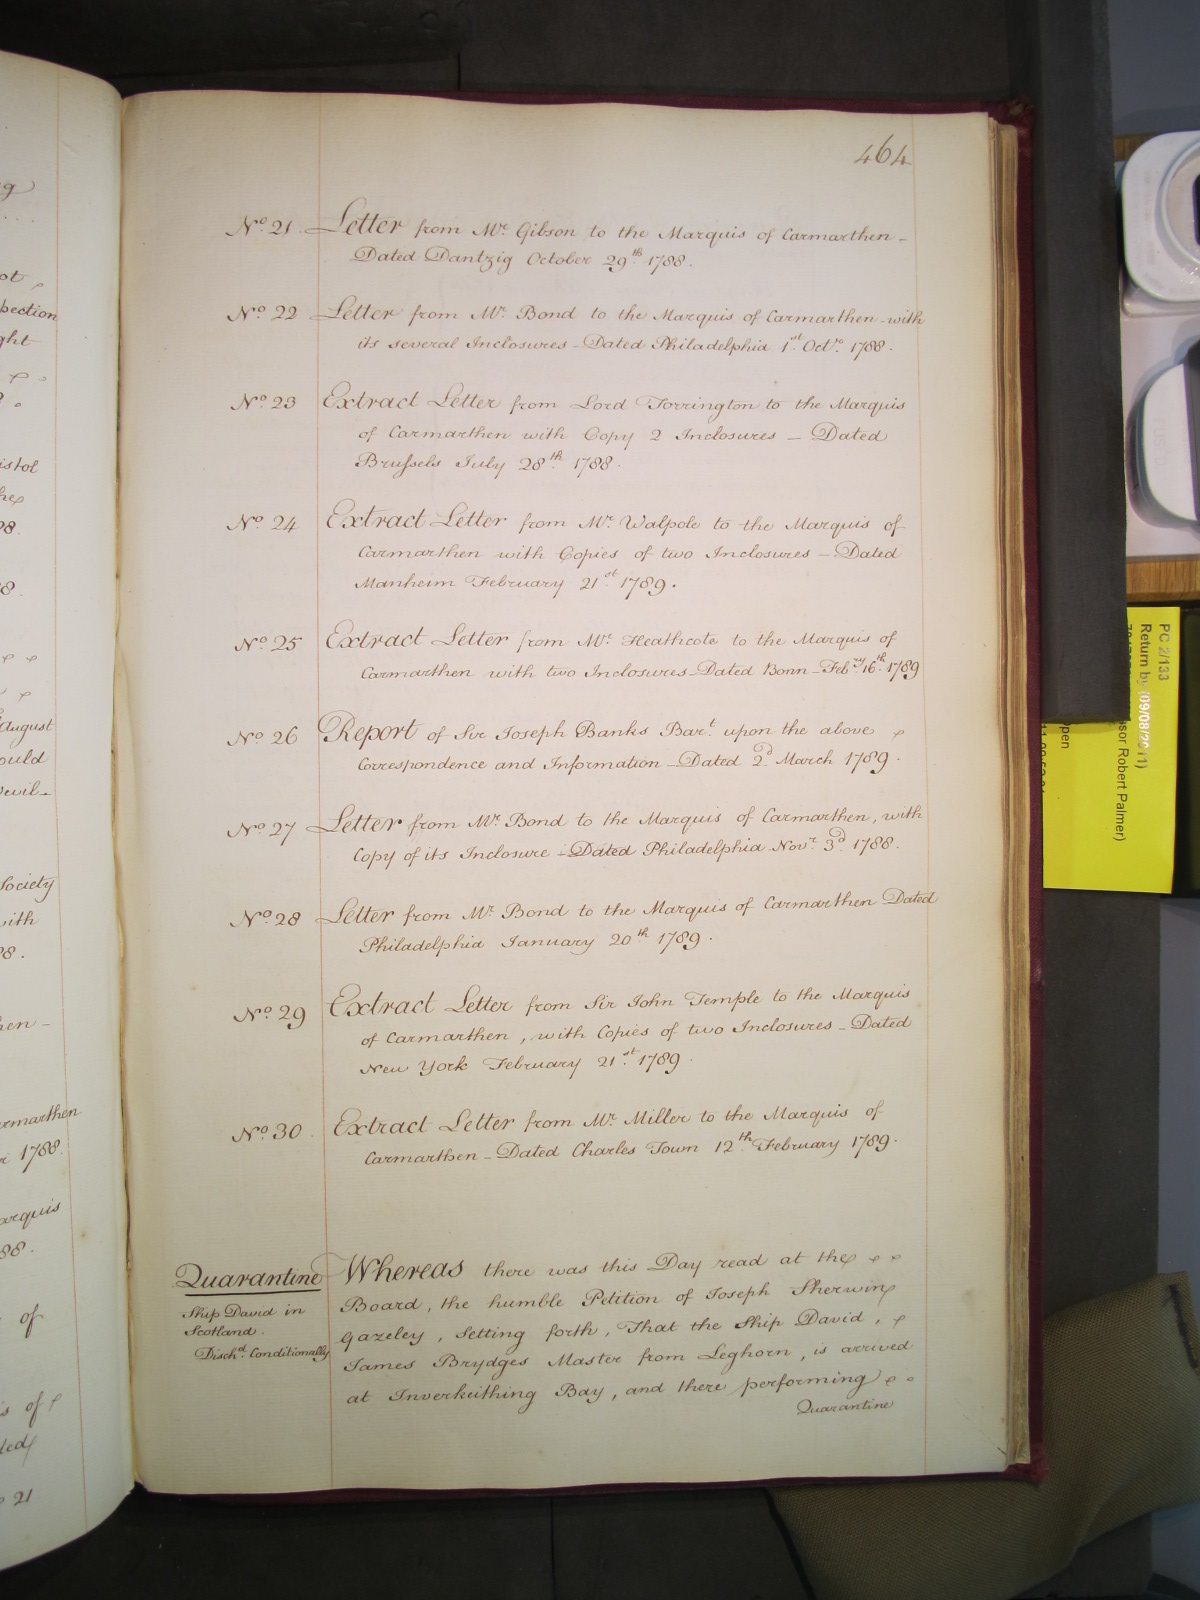 464
No. 21 Letter from Mr. Gibson to the Marquis of Carmarthen -
Dated Dantzig October 29th. 1788.
No. 22 Letter from Mr. Bond to the Marquis of Carmarthen - with
its several Inclosures - Dated Philadelphia 1st. Octr. 1788.
No. 23 Extract Letter from Lord Torrington to the Marquis
of Carmarthen with Copy 2 Inclosures - Dated
Brussels July 28th. 1788.
No. 24 Extract Letter from Mr. Walpole to the Marquis of
Carmarthen with Copies of two Inclosures - Dated
Manheim February 21st. 1789.
No. 25 Extract Letter from Mr. Heathcote to the Marquis of
Carmarthen with two Inclosures - Dated Bonn - Febry. 16th. 1789
No. 26 Report of Sir Joseph Banks Bart. upon the above
Correspondence and Information - Dated 2d. March 1789.
No. 27 Letter from Mr. Bond to the Marquis of Carmarthen, with
Copy of its Inclosure - Dated Philadelphia Novr. 3d. 1788.
No. 28 Letter from Mr. Bond to the Marquis of Carmarthen Dated
Philadelphia January 20th 1789.
No. 29 Extract Letter from Sir John Temple to the Marquis
of Carmarthen, with Copies of two Inclosures - Dated
New York February 21st. 1789.
No. 30 Extract Letter from Mr. Miller to the Marquis of
Carmarthen - Dated Charles Town 12th. February 1789.
Quarantine
Ship David in
Scotland.
Dischd. Conditionally
Whereas there was this Day read at the
Board, the humble Petition of Joseph Sherwin
Gazeley, Setting forth, That the Ship David,
James Brydges Master from Leghorn, is arrived
at Inverkeithing Bay, and there performing
Quarantine
pection
ght
istol
August
ould
Society
with
armarthen
1788
arquis
88.
of
21
PC 2/133
Return by (09/08/2011)
sor Robert Palmer)
pen